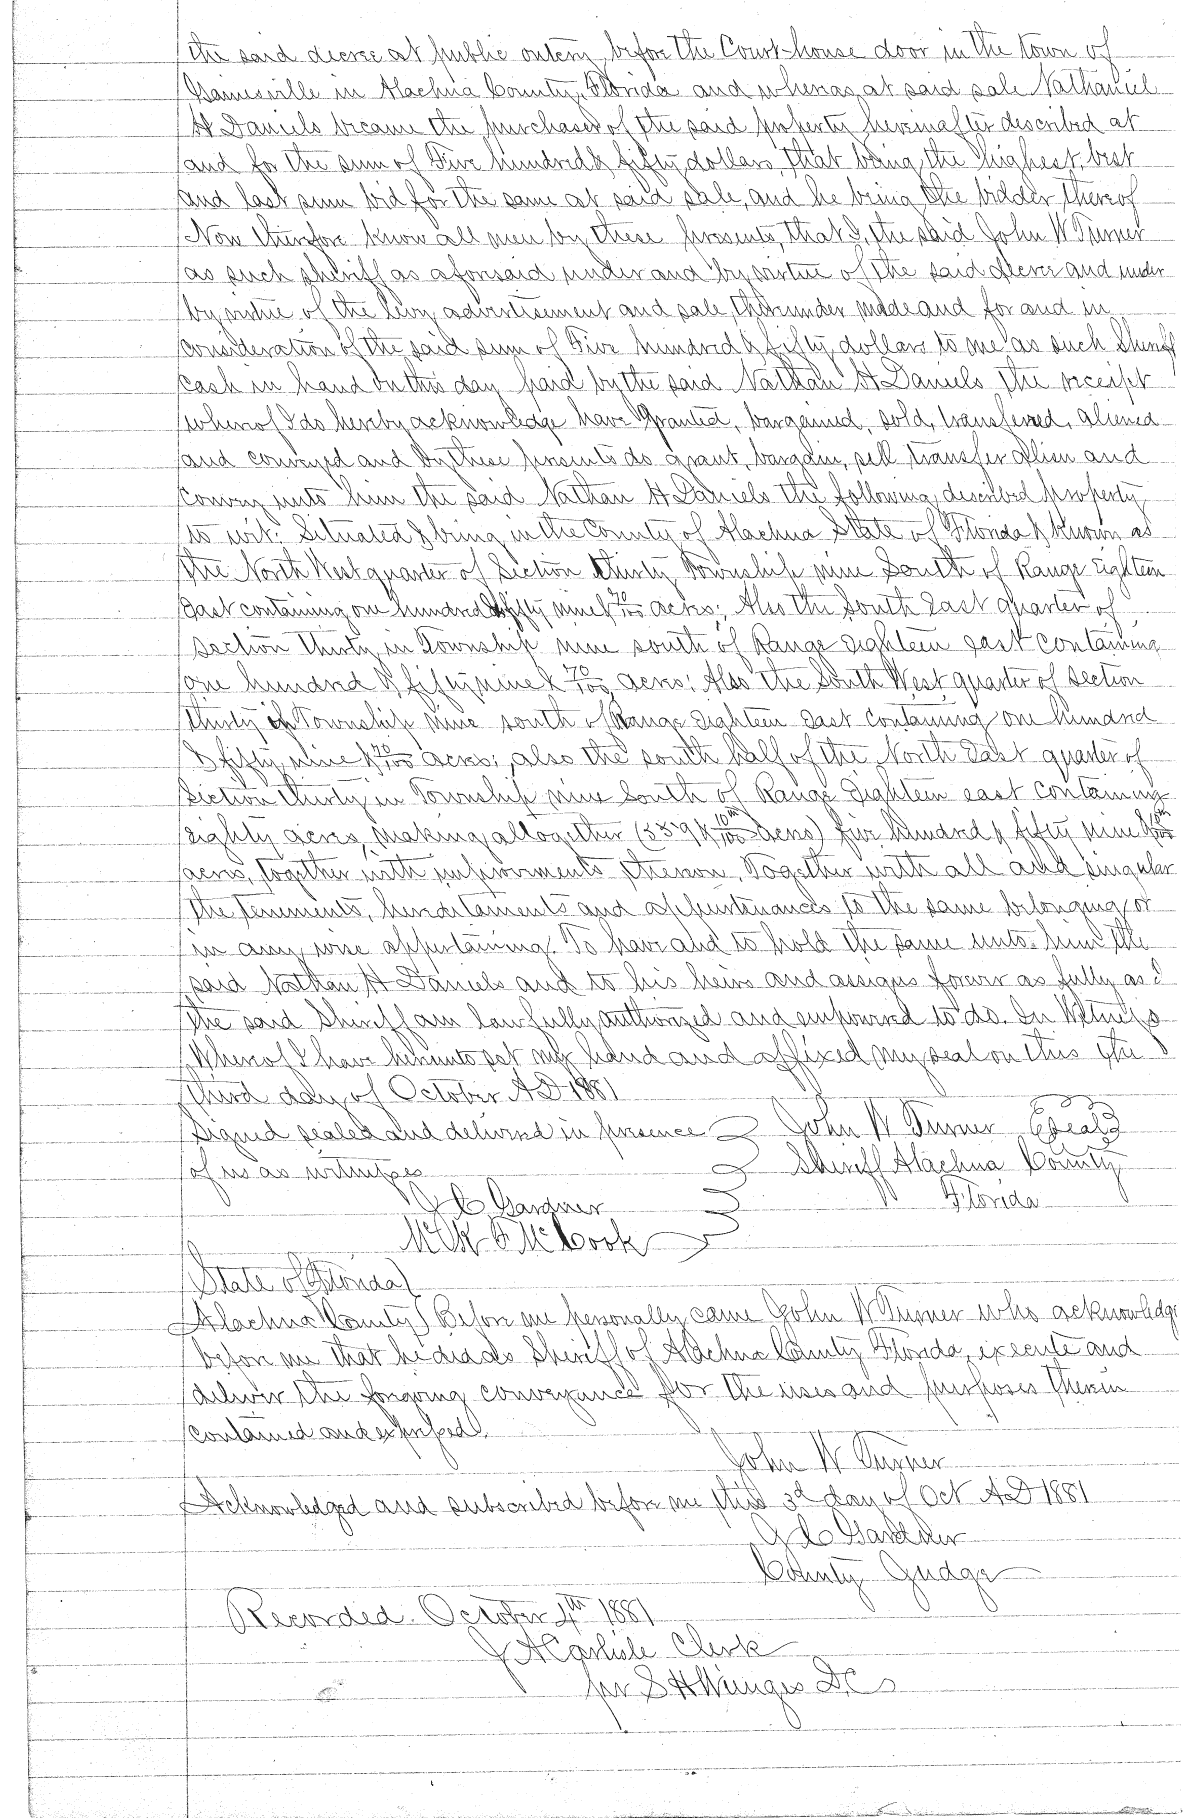 the said decree at public outcry, before the Court-house door in the town of
Gainesville in Alachua County, Florida and whereas, at said sale Nathaniel
H Daniels became the purchaser of the said property hereinafter described at
and for the sum of Five hundred & fifty dollars, that being the highest, best
and last sum bid for the same at said sale, and he being the bidder thereof
Now therefore know all men by these presents, that I, the said John W Turner
as such sheriff as aforesaid under and by virtue of the said decree and under
by virtue of the levy advertisement and sale thereunder made and for and in
consideration of the said sum of Five hundred & fifty dollars to me as such Sheriff
cash in hand on this day paid by the said Nathan H Daniels the receipt
whereof I do hereby acknowledge have granted, bargained, sold, transferred, aliened
and conveyed and by these presents do grant, bargain, sell transfer alien and
convey unto him the said Nathan H Daniels the following described property
to wit: Situated & being in the County of Alachua State of Florida & known as
the North West quarter of Section thirty Township nine South of Range Eighteen
East containing one hundred & fifty nine & 70/100 acres; Also the South East quarter of
section thirty in Township nine south of Range eighteen east containing
one hundred & fifty nine & 70/100 acres; Also the South West quarter of section
thirty in Township nine south of Range Eighteen East containing one hundred
& fifty nine & 70/100 acres; also the south half of the North East quarter of
Section thirty in Township nine South of Range Eighteen east containing
eighty acres, making altogether (559 & 10th/100 acres) five hundred & fifty nine & 10th/100
acres, together with improvements thereon. Together with all and singular
the tenements, hereditaments and appurtenances to the same belonging or
in any wise appertaining. To have and to hold the same unto him the
said Nathan H Daniels and to his heirs and assigns forever as fully as I
the said Sheriff am lawfully authorized and empowered to do. In Witness
Whereof I have hereunto set my hand and affixed my seal on this the
third day of October AD 1881
Signed sealed and delivered in presence John W Turner Seal
of us as witnesses Sheriff Alachua County
J C Gardner Florida
F McCook
State of Florida
Alachua County Before me personally came John W Turner who acknowledge
before me that he did as Sheriff of Alachua County Florida, execute and
deliver the forgoing conveyance for the uses and purposes therein
contained and expressed.
John W Turner
Acknowledged and subscribed before me this 3d day of Oct AD 1881
J C Gardner
County Judge
Recorded October 4th 1881
J A Carlisle Clerk
per S H Wienges D.C